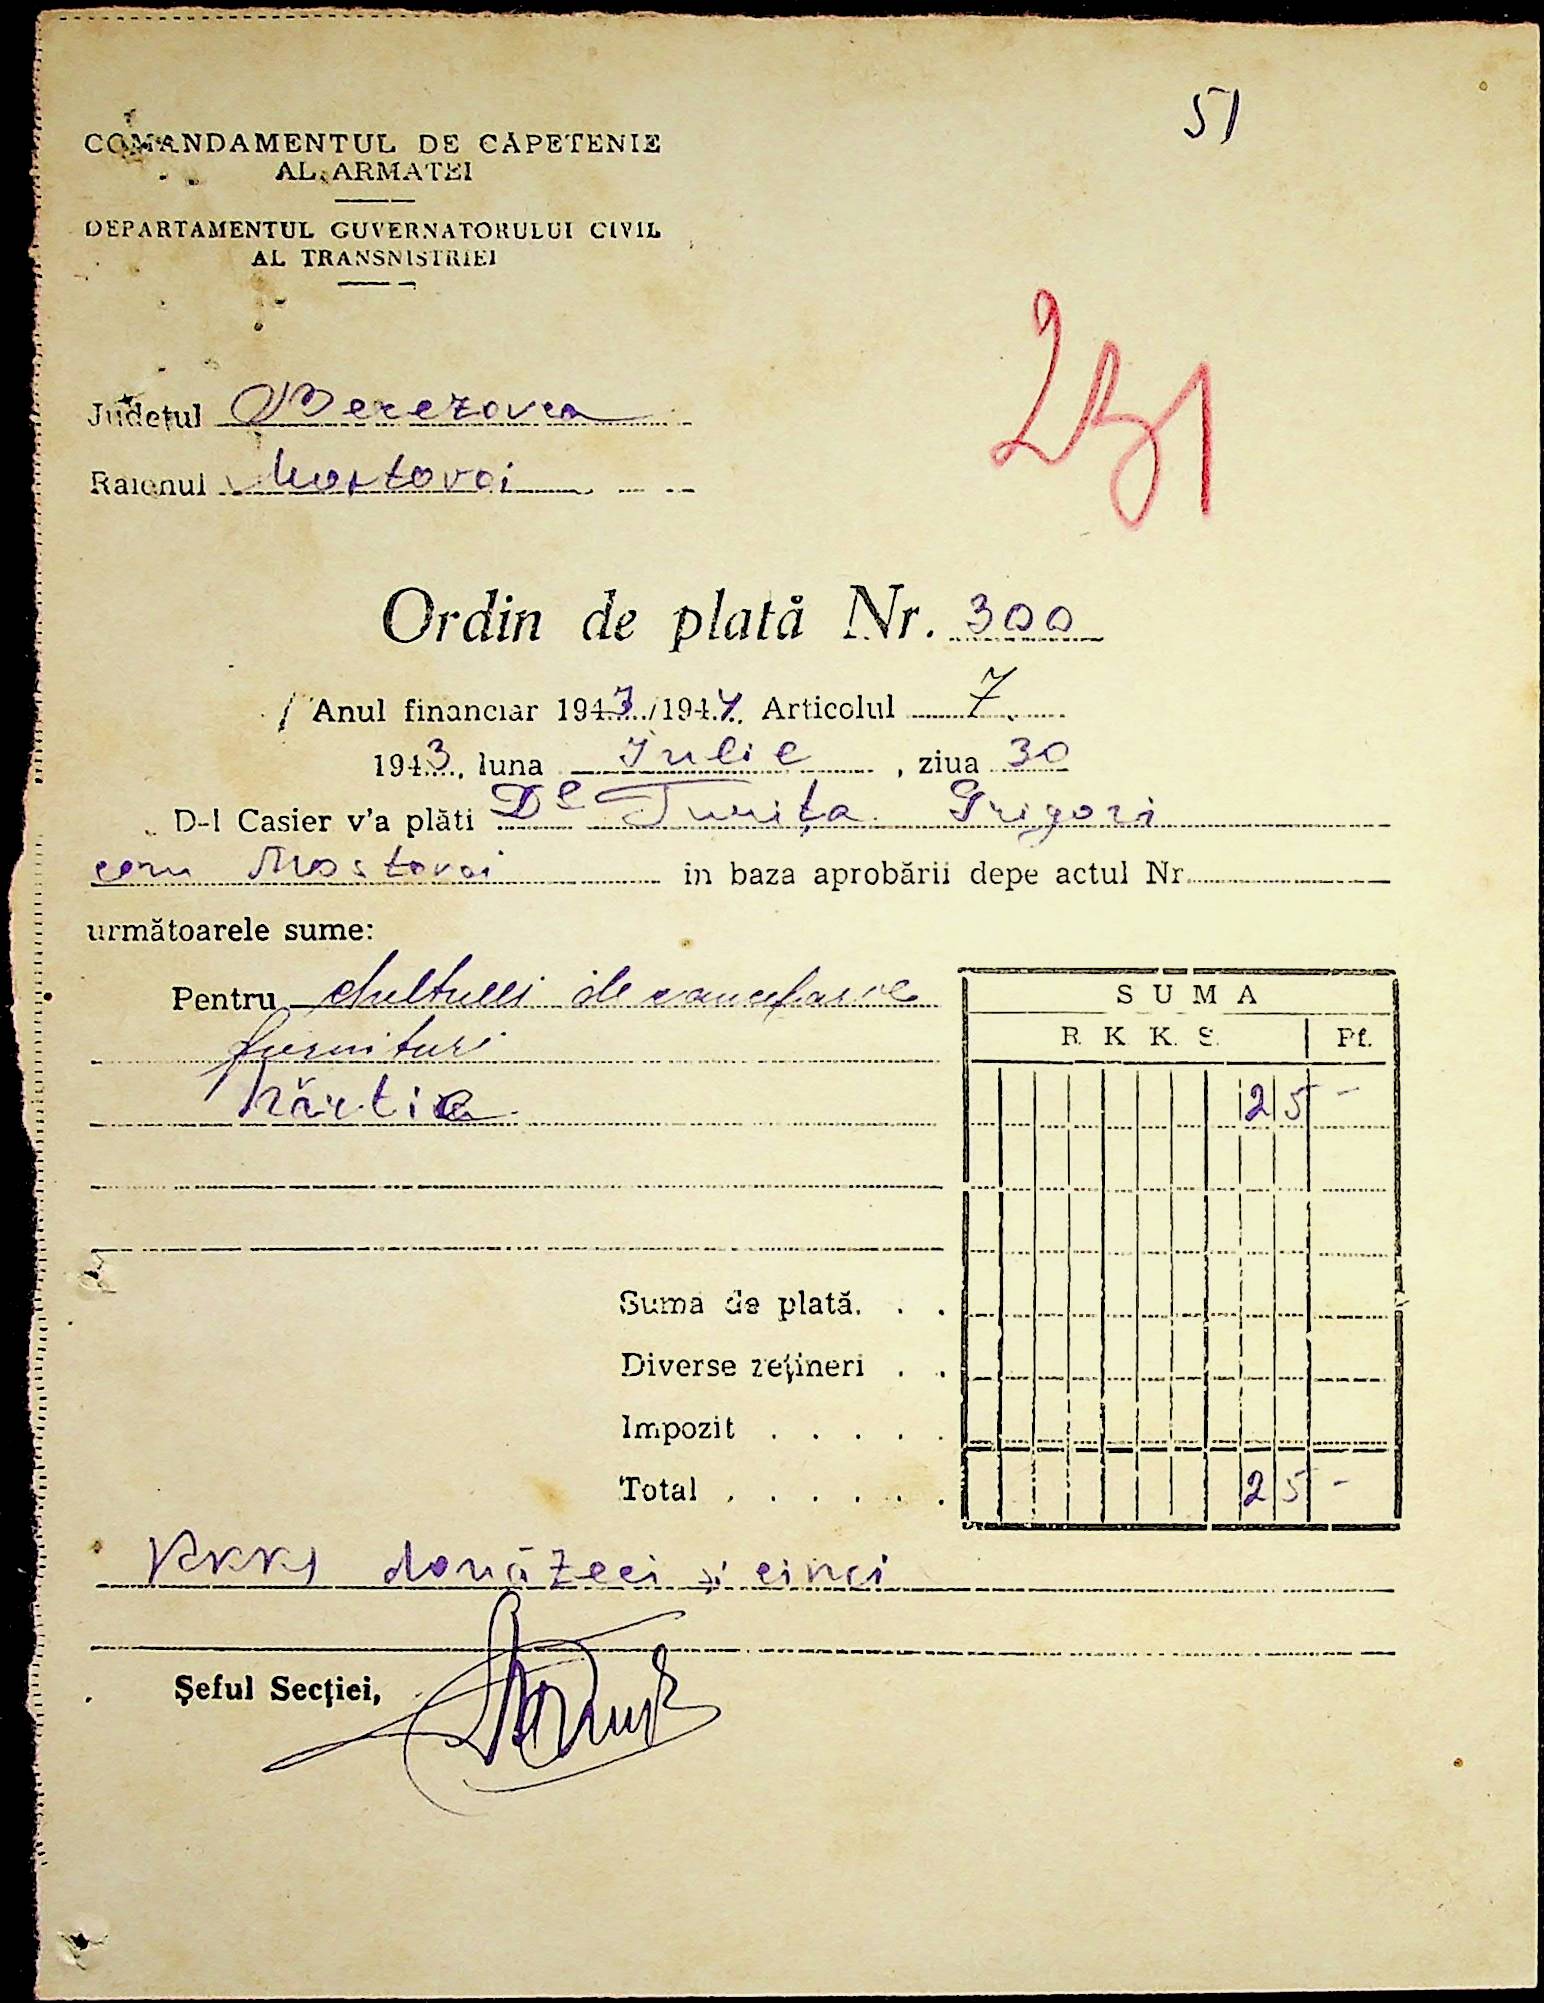 51
COMANDAMENTUL DE CĂPETENIE
AL ARMATEI
DEPARTAMENTUL GUVERNATORULUI CIVIL
AL TRANSNISTRIEI
251
Județul Berezovca
Raionul Mostovoi
Ordin de plată Nr. 300
Anul financiar 1943/1944 Articolul 7
1943, luna Iulie, ziua 30
D-l Casier v'a plăti Dl Turița Grigori
com Mostovoi in baza aprobării depe actul Nr.
următoarele sume:
Pentru cheltueli de cancelarie
furnituri
hârtie
SUMA
R. K. K. S. Pf.
25 -
Suma de plată. . .
Diverse rețineri . .
Impozit . . . . .
Total . . . . . . 25 -
RKKS douăzeci și cinci
Șeful Secției,